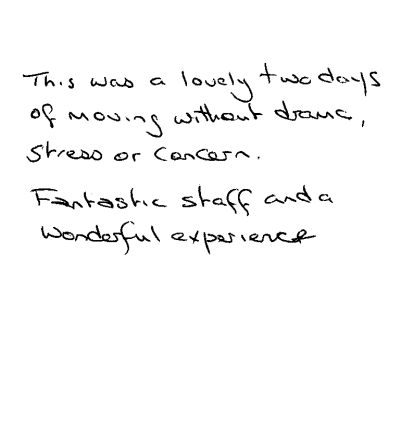 This was a lovely two days
of moving without drama,
stress or concern.
Fantastic staff and a
wonderful experience